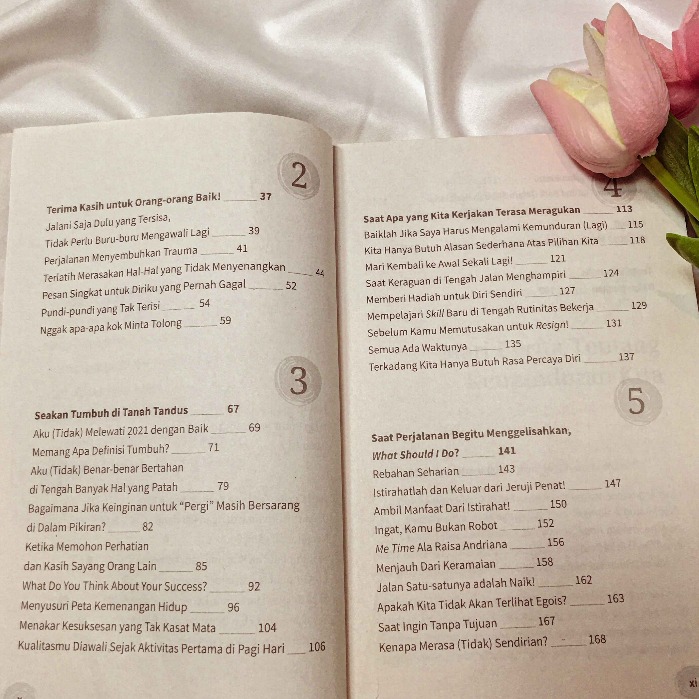 2
Terima Kasih untuk Orang-orang Baik! ______ 37
Jalani Saja Dulu yang Tersisa,
Tidak Perlu Buru-buru Mengawali Lagi ______ 39
Perjalanan Menyembuhkan Trauma ______ 41
Terlatih Merasakan Hal-Hal yang Tidak Menyenangkan ______ 44
Pesan Singkat untuk Diriku yang Pernah Gagal ______ 52
Pundi-pundi yang Tak Terisi ______ 54
Nggak apa-apa kok Minta Tolong ______ 59
3
Seakan Tumbuh di Tanah Tandus ______ 67
Aku (Tidak) Melewati 2021 dengan Baik ______ 69
Memang Apa Definisi Tumbuh? ______ 71
Aku (Tidak) Benar-benar Bertahan
di Tengah Banyak Hal yang Patah ______ 79
Bagaimana Jika Keinginan untuk “Pergi” Masih Bersarang
di Dalam Pikiran? ______ 82
Ketika Memohon Perhatian
dan Kasih Sayang Orang Lain ______ 85
What Do You Think About Your Success? ______ 92
Menyusuri Peta Kemenangan Hidup ______ 96
Menakar Kesuksesan yang Tak Kasat Mata ______ 104
Kualitasmu Diawali Sejak Aktivitas Pertama di Pagi Hari ____ 106
4
Saat Apa yang Kita Kerjakan Terasa Meragukan ______ 113
Baiklah Jika Saya Harus Mengalami Kemunduran (Lagi) ___ 115
Kita Hanya Butuh Alasan Sederhana Atas Pilihan Kita ____ 118
Mari Kembali ke Awal Sekali Lagi! ______ 121
Saat Keraguan di Tengah Jalan Menghampiri ______ 124
Memberi Hadiah untuk Diri Sendiri ______ 127
Mempelajari Skill Baru di Tengah Rutinitas Bekerja ______ 129
Sebelum Kamu Memutuskan untuk Resign! ______ 131
Semua Ada Waktunya ______ 135
Terkadang Kita Hanya Butuh Rasa Percaya Diri ______ 137
5
Saat Perjalanan Begitu Menggelisahkan,
What Should I Do? ______ 141
Rebahan Seharian ______ 143
Istirahatlah dan Keluar dari Jeruji Penat! ______ 147
Ambil Manfaat Dari Istirahat! ______ 150
Ingat, Kamu Bukan Robot ______ 152
Me Time Ala Raisa Andriana ______ 156
Menjauh Dari Keramaian ______ 158
Jalan Satu-satunya adalah Naik! ______ 162
Apakah Kita Tidak Akan Terlihat Egois? ______ 163
Saat Ingin Tanpa Tujuan ______ 167
Kenapa Merasa (Tidak) Sendirian? ______ 168
XI